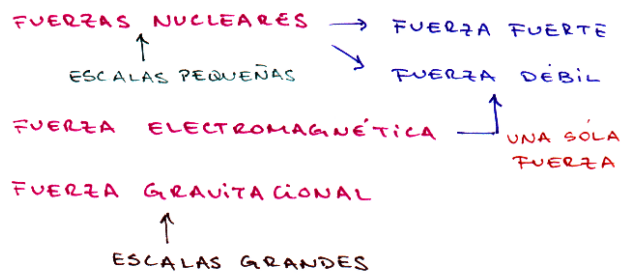 FUERZAS NUCLEARES → FUERZA FUERTE
ESCALAS PEQUEÑAS FUERZA DÉBIL
FUERZA ELECTROMAGNÉTICA UNA SÓLA
FUERZA
FUERZA GRAVITACIONAL
ESCALAS GRANDES